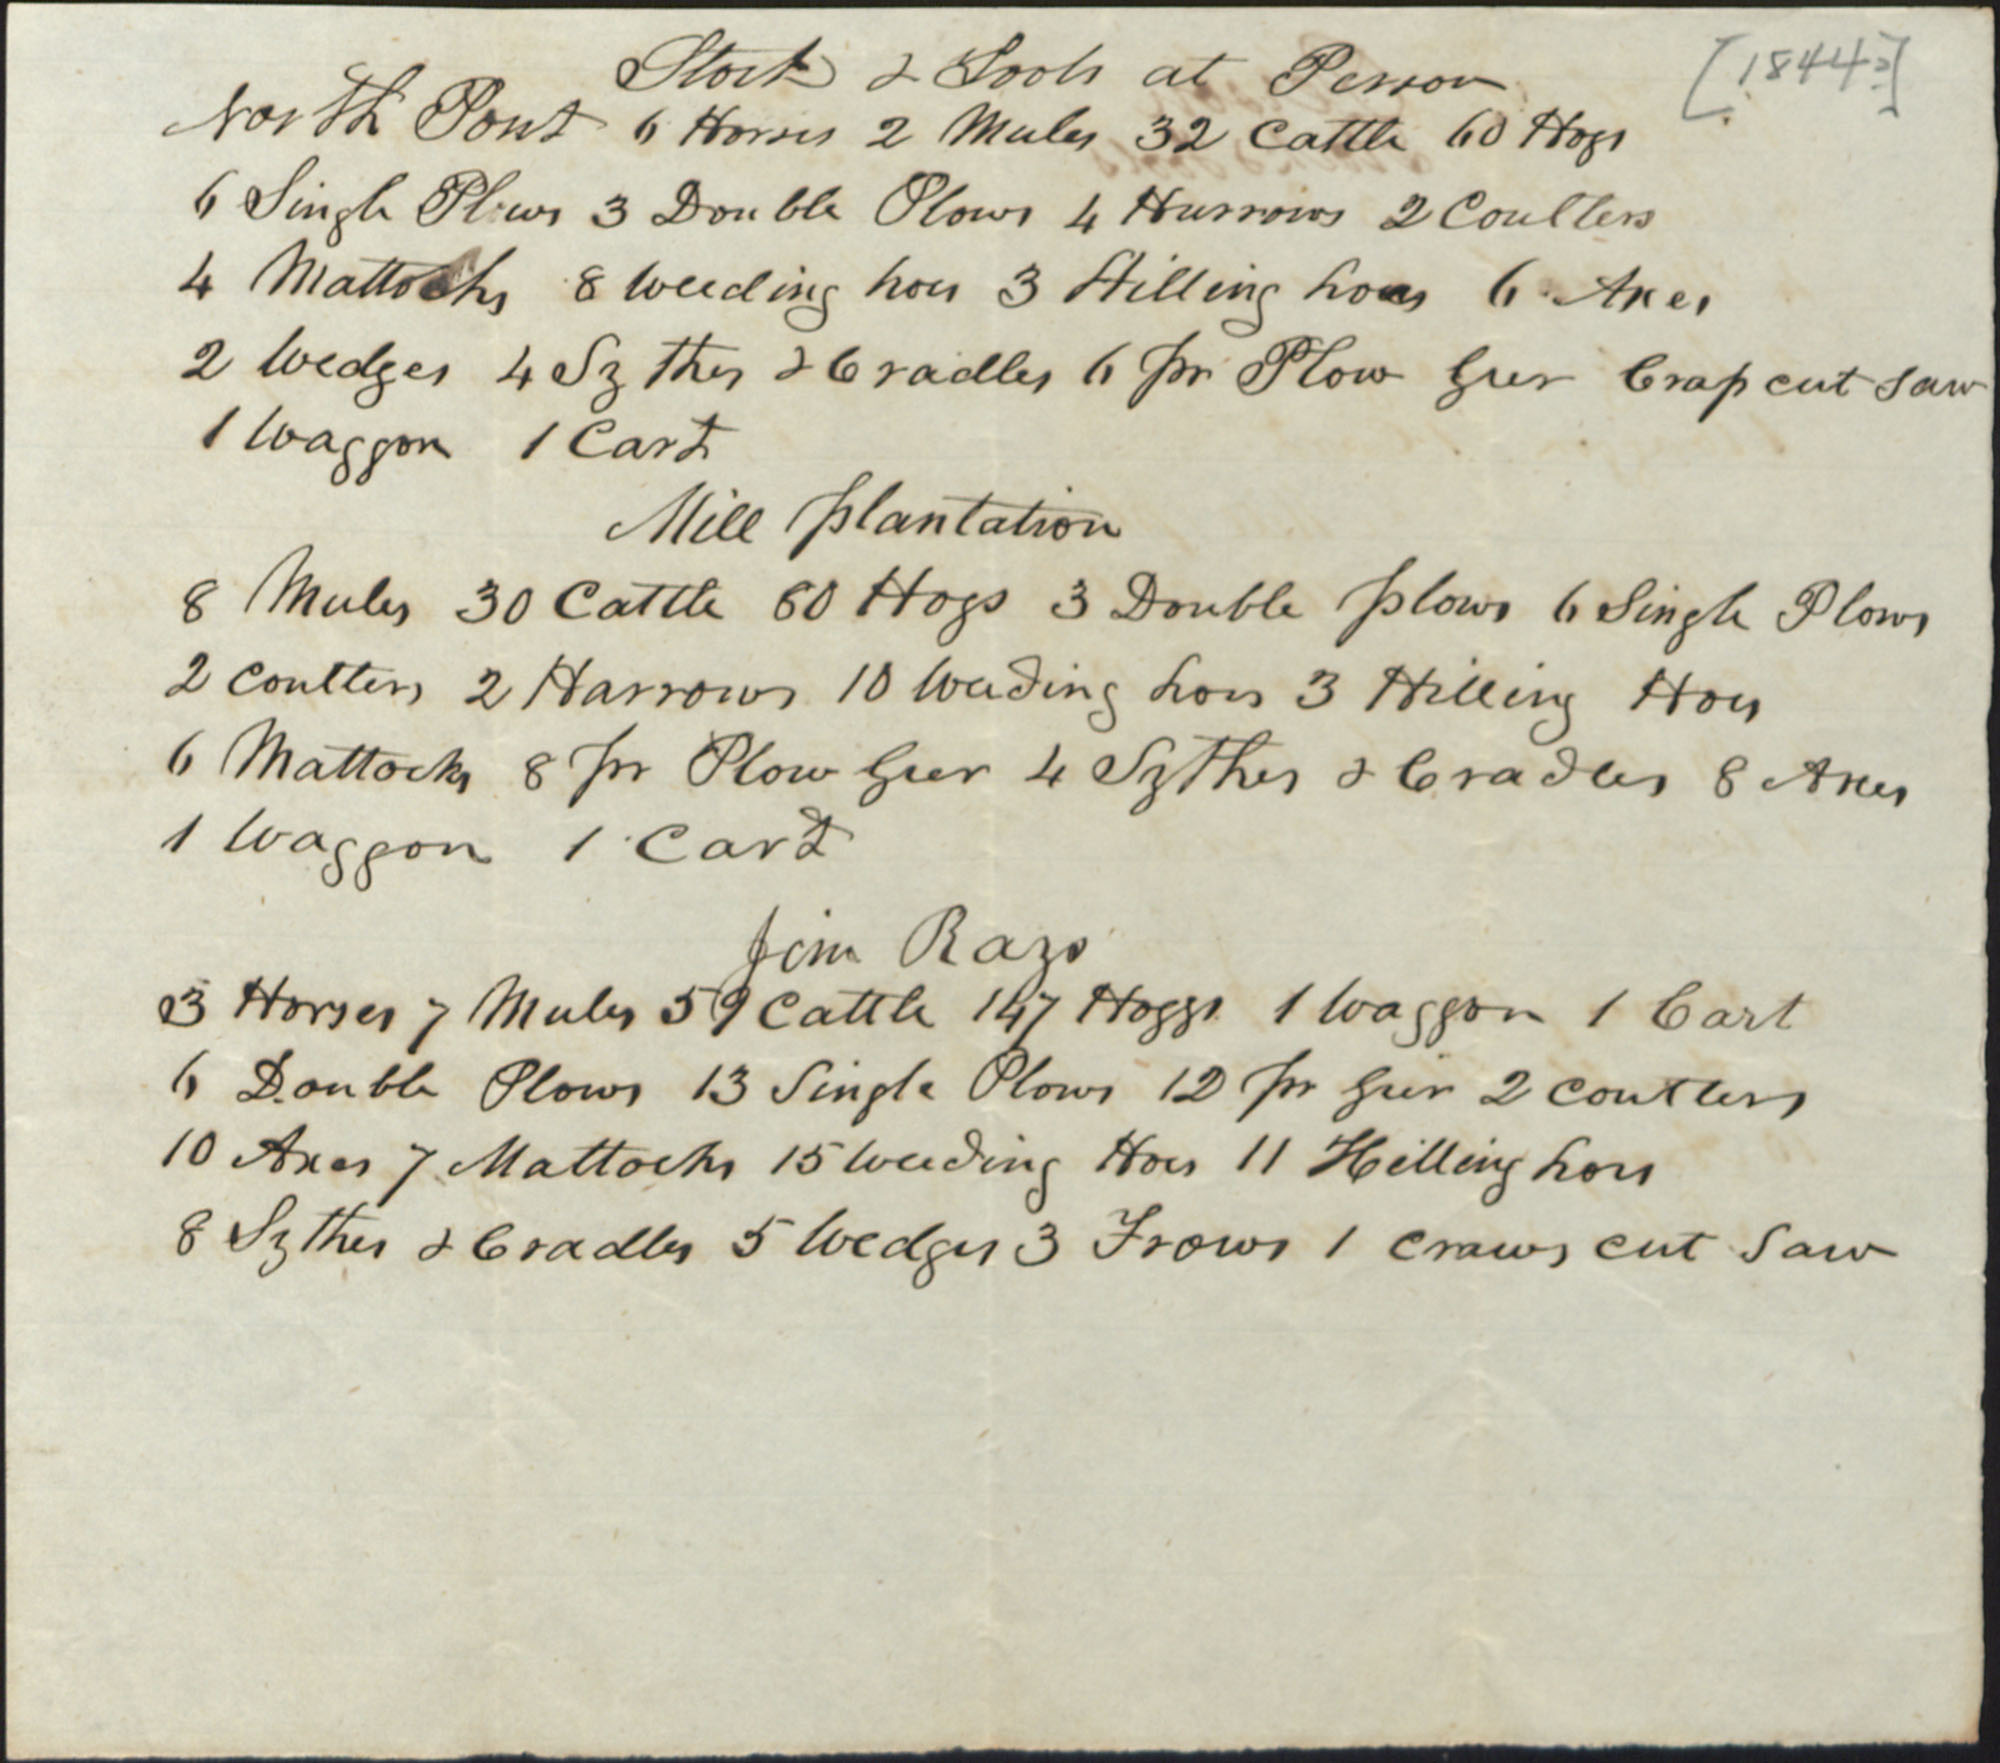 [1844?]
Stock & Tools at Person
North Pont 6 Horses 2 Mules 32 Cattle 60 Hogs
6 Single Plows 3 Double Plows 4 Hurrows 2 Coulters
4 Mattocks 8 weeding hoes 3 Hilling hoes 6 Axes
2 Wedges 4 Sythes & Cradles 6 pr Plow Geer Crap cut saw
1 Waggon 1 Cart
Mill plantation
8 Mules 30 Cattle 60 Hogs 3 Double plows 6 Single Plows
2 coulters 2 Harrows 10 weeding hoes 3 Hilling Hoes
6 Mattocks 8 pr Plow Geer 4 Sythes & Cradles 8 Axes
1 Waggon 1 Cart
Jim Rays
3 Horses 7 Mules 59 Cattle 147 Hoggs 1 Waggon 1 Cart
6 Double Plows 13 Single Plows 12 pr Geer 2 coulters
10 Axes 7 Mattocks 15 weeding Hoes 11 Hilling hoes
8 Sythes & Cradles 5 Wedges 3 Frows 1 craws cut Saw